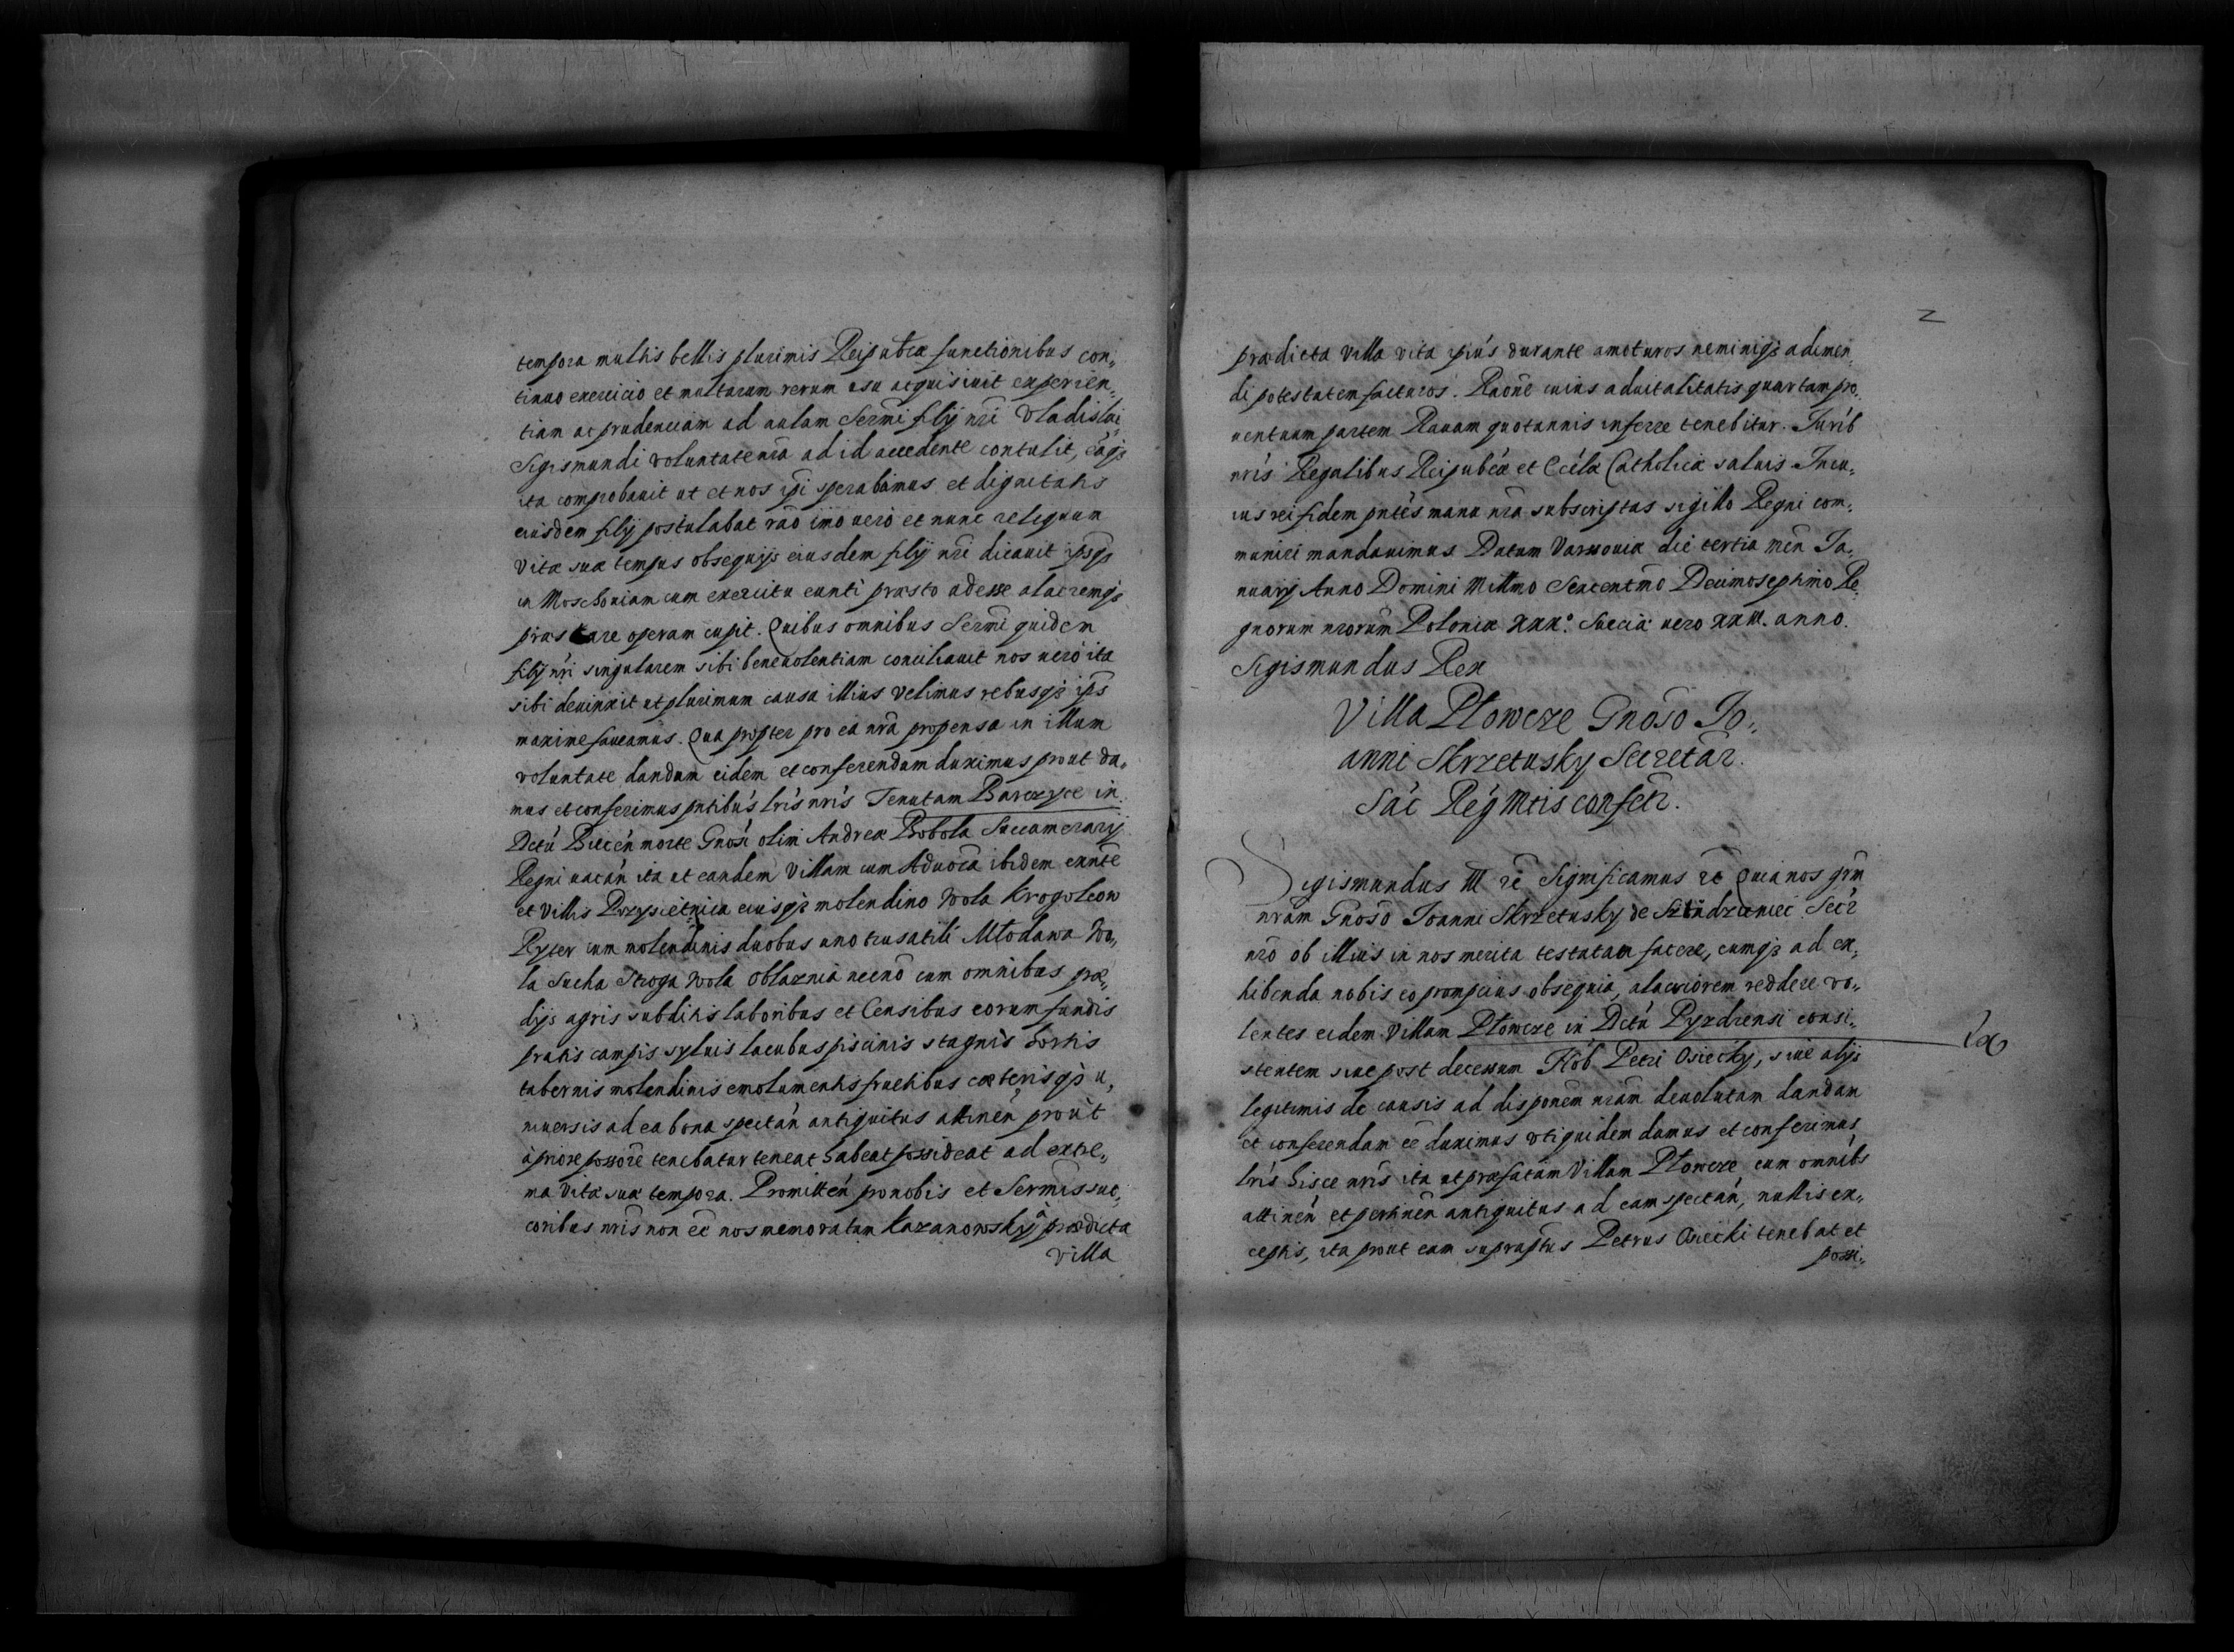 tempora multis bellis plurimis Reipublcæ functionibus con„
tinuo exercicio et multarum rerum usu acquisiuit experien„
tiam ac prudenciam ad aulam Sermi filij nri Vladislai
Sigismundi voluntate nra ad id accedente contulit, eaqs
ita comprobauit ut et nos ipi sperabamus et dignitatis
eiusdem filij postulabat rao imo uero et nunc reliquum
Vitæ suæ tempus obsequijs eiusdem filij nri dicauit ipsqs
in Moschouiam cum exercitu eunti præsto adesse alacremqs
præstare operam cupit. Quibus omnibus Sermi quidem
filij nri singularem sibi beneuolentiam conciliauit nos uero ita
sibi deuinxit ut plurimum causa illius velimus rebusqs ips
maxime faueamus. Qua propter pro ea nra propensa in illum
voluntate dandam eidem et conferendam duximus prout da„
mus et conferimus pntibus lris nris Tenutam Barczyce in
Dctu Biecen morte Gnosi olim Andreæ Bobola Succamerarij
Regni uacan ita ut eandem Villam cum Aduoca ibidem exnte
et Villis Przysietnica eiusqs molendino Wola Krogolcow
Ryter cum molendinis duobus uno trusatili Młodawa Wo„
la Sucha Stroga Wola Oblaznia necno cum omnibus præ„
dijs agris subditis laboribus et Censibus eorum fundis
pratis campis syluis lacubus piscinis stagnis hortis
tabernis molendinis emolumentis fructibus cæterisqs u„
niuersis ad ea bona spectan antiquitus attinen prout
a priore possore tenebatur teneat habeat possideat ad extre„
ma vitæ suæ tempora. Promitten pro nobis et Sermis suc„
coribus nris non ee nos memoratum Kazanowsky a prædicta
villa
2
prædicta villa vita ipius durante amoturos neminiqs adimen„
di potestatem facturos. Raone cuius aduitalitatis quartam pro„
uentuum partem Rauam quotannis inferre tenebitur. Jurib
nris Regalibus Reipubcæ et Eccla Catholicæ saluis Incu„
ius rei fidem pntes manu nra subscriptas sigillo Regni com„
muniri mandauimus Datum Varsouiæ die tertia men Ja„
nuarij Anno Domini Millmo Sexcentmo Decimoseptimo Re„
gnorum nrorum Poloniæ xxx.° Sueciæ uero xxIII. anno.
Sigismundus Rex
Villa Płowcze Gnoso Jo„
anni Skrzetusky Secretar.
Sac Reg Mtis confetr.
Sigismundus III rc Significamus rc Quia nos grm
nram Gnoso Joanni Skrzetusky de Secr
nro ob illius in nos merita testatam facere, eumqs ad ex„
hibenda nobis eo prompcius obsequia, alacriorem reddere vo„
lentes eidem Villam Płowcze in Dctu Pyzdrensi consi„
stentem siue post decessum Nob Petri Osiecky, siue alijs
legitimis de causis ad disponem nram deuolutam dandam
et conferendam ee duximus vti quidem damus et conferimus
lris hisce nris ita ut præfatam Villam Płowcze cum omnibs
attinen et pertinen antiquitus ad eam spectan, nullis ex„
ceptis, ita prout eam supraptus Petrus Osiecki tenebat et
possi„